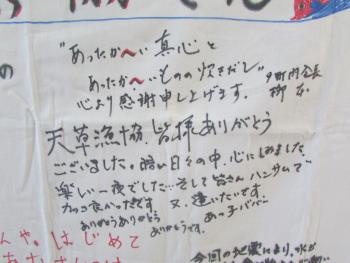 "あったか〜い真心と
あったか〜いものの炊きだし"
心より感謝申し上げます。
夕町内会長
柳本
天草漁協、皆様ありがとう
ございました。暗い日々の中、心にしみました。
楽しい一夜でした…そして皆さんハンサムで
カッコ良かったです 又、逢いたいです。
ありがとうありがとう
ありがとうです。
あっ子ババ
んや。はじめて
今回の地震により、水が